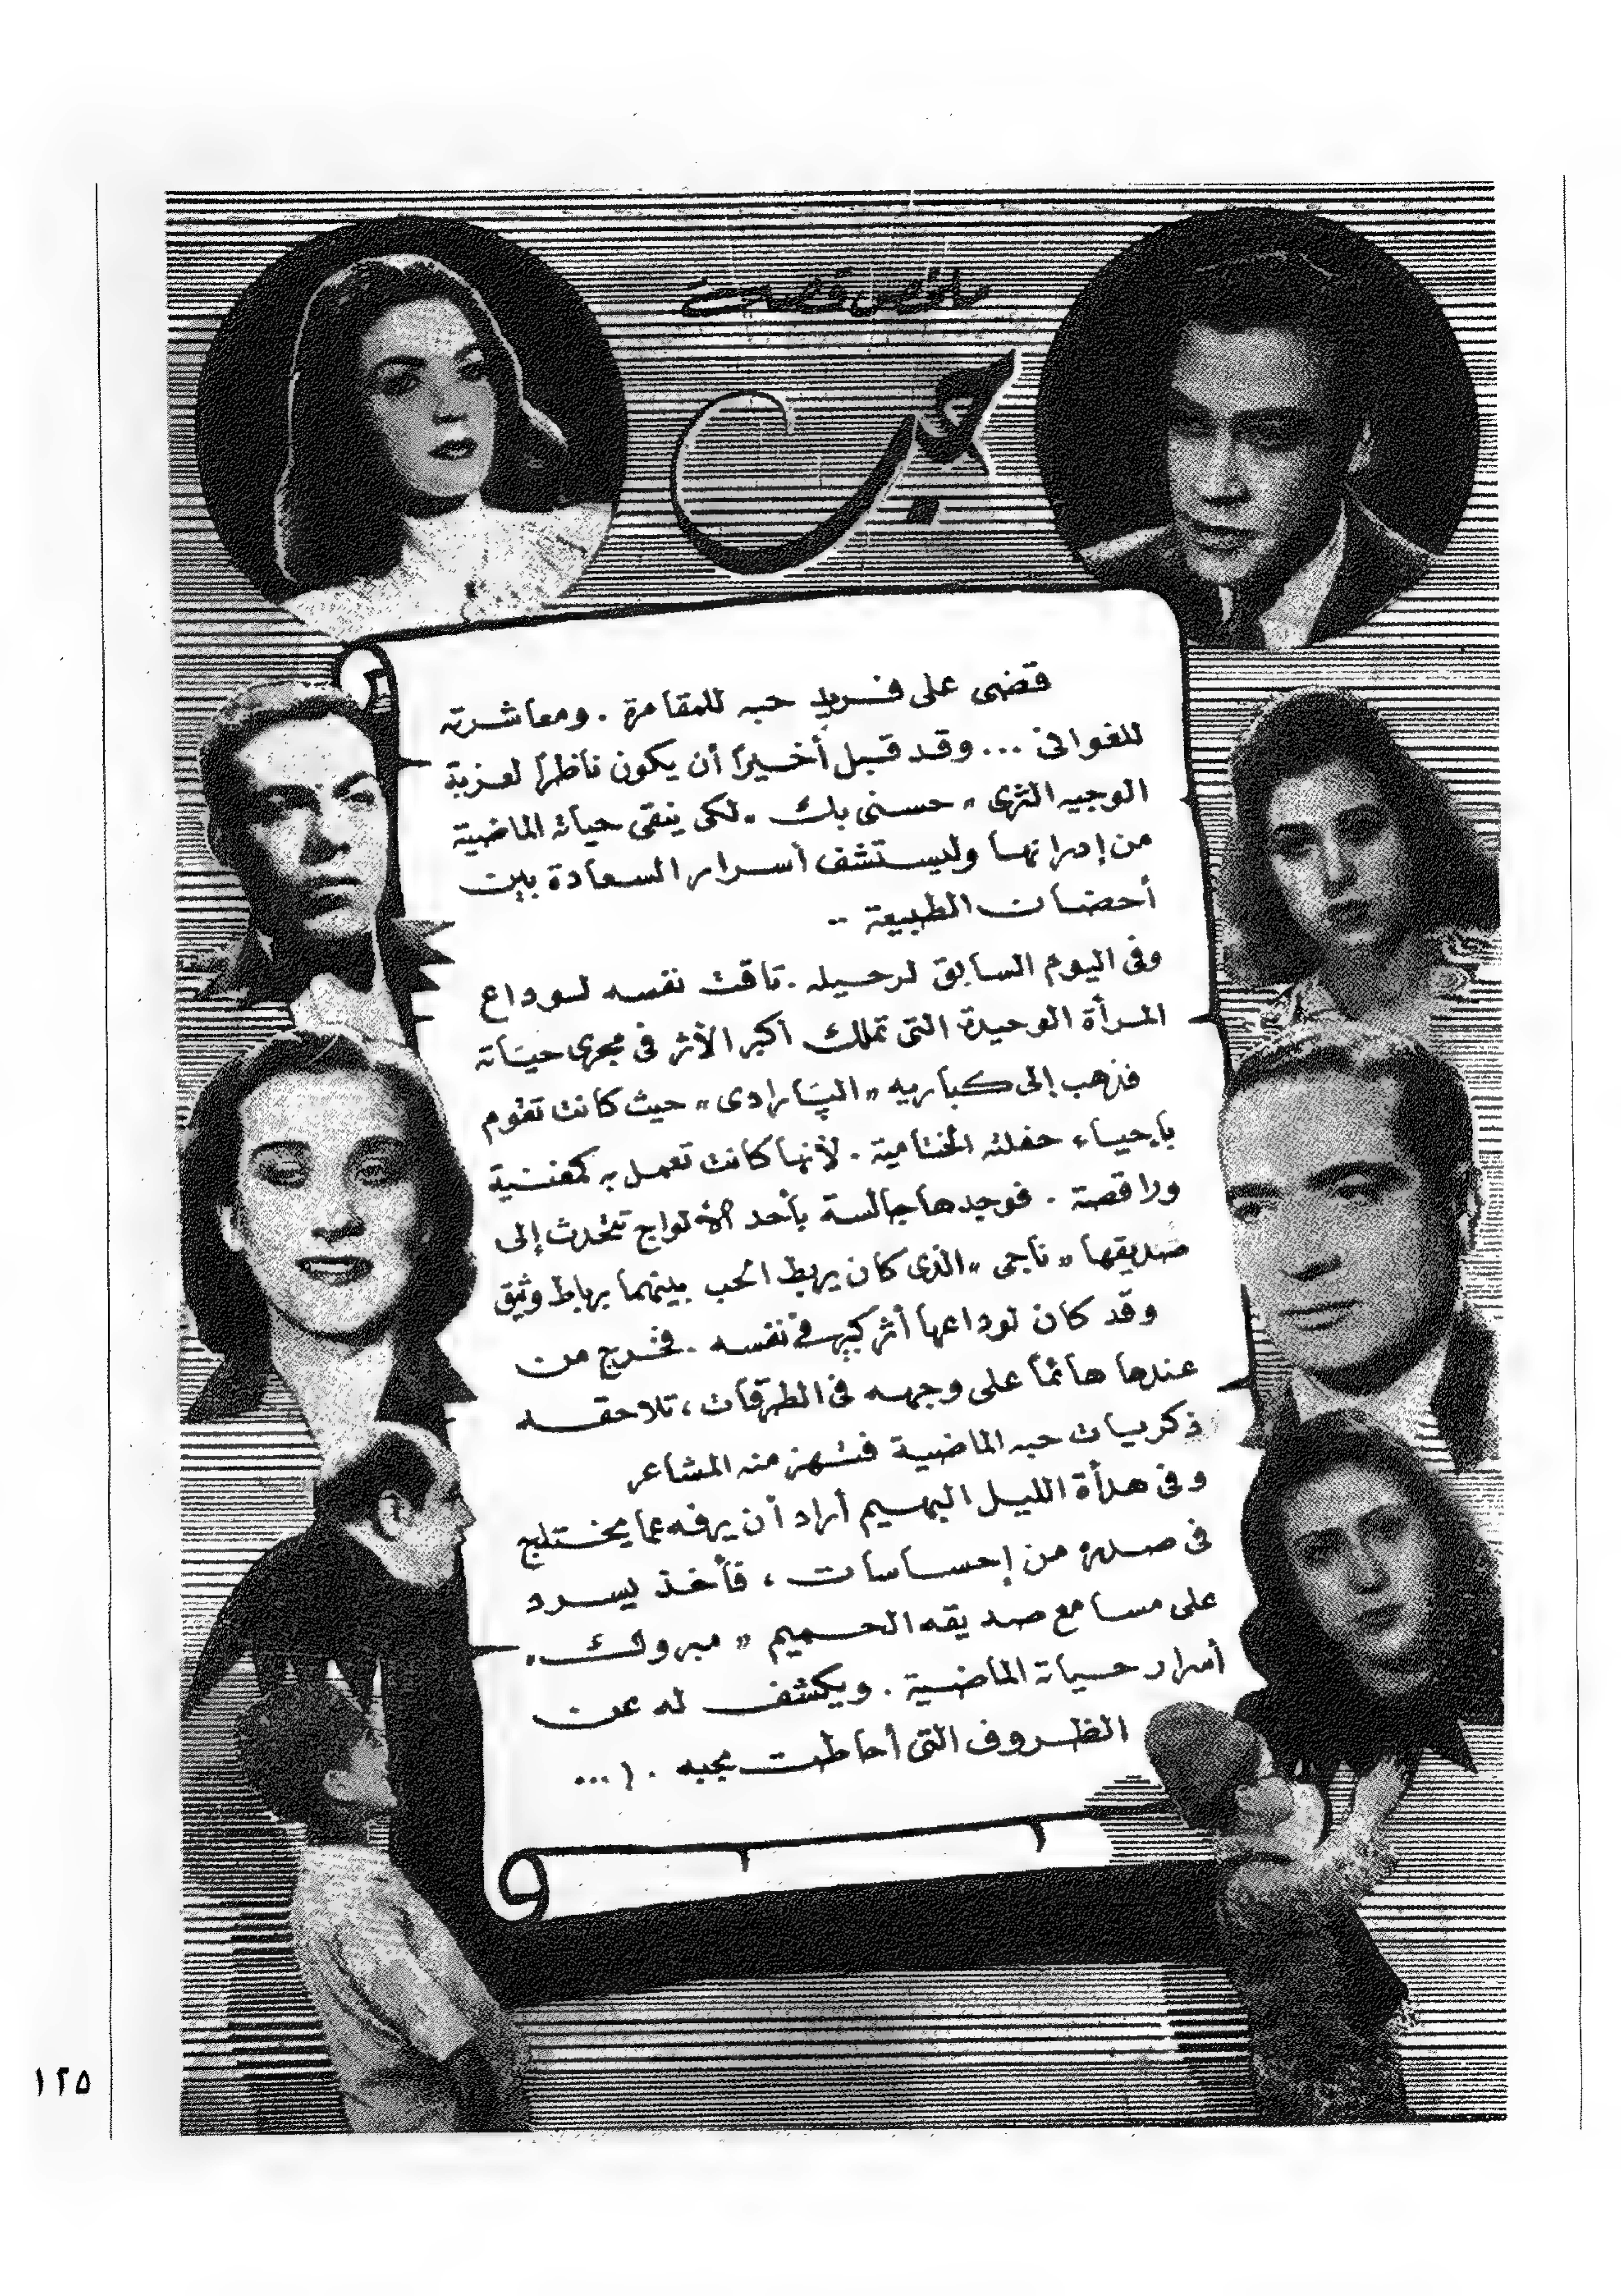 ملخص قصة
حب
قضى على فريد حبه للمقامرة . ومعاشرته
للغوانى ... وقد قبل أخيراً أن يكون ناظراً لعزبة
الوجيه الثرى " حسنى بك " لكى ينقى حياته الماضية
من إدرانها وليستشف أسرار السعادة بين
أحضان الطبيعة ..
وفى اليوم السابق لرحيله . تاقت نفسه لوداع
المرأة الوحيدة التى تملك أكبر الأثر فى مجرى حياته
فذهب إلى كباريه " الپارادى " حيث كانت تقوم
بإحياء حفلته الختامية . لأنها كانت تعمل به كمغنية
وراقصة . فوجدها جالسة بأحد الألواج تتحدث إلى
صديقها " ناجى " الذى كان يربط الحب بينهما برباط وثيق
وقد كان لوداعها أثر كبير فى نفسه . فخرج من
عندها هائماً على وجهه فى الطرقات ، تلاحقه
ذكريات حبه الماضية فتهز منه المشاعر
وفى هدأة الليل البهيم أراد أن يرفه عما يختلج
فى صدره من إحساسات ، فأخذ يسرد
على مسامع صديقه الحميم " مبروك "
أسرار حياته الماضية . ويكشف له عن
الظروف التى أحاطت بحبه . ( ...
١٢٥